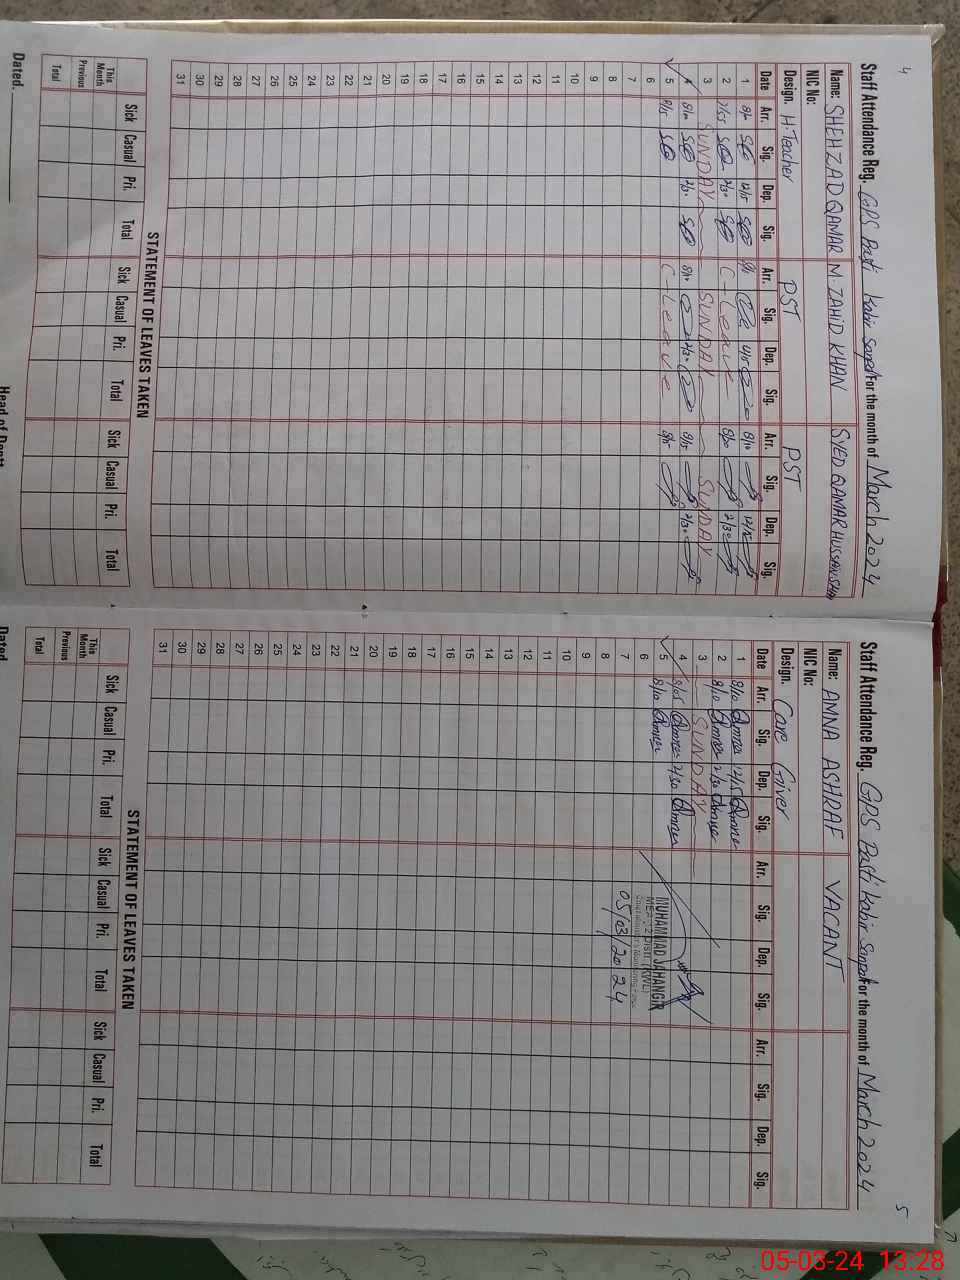 4
Staff Attendance Reg. GPS Basti Kabir Sanpal For the month of March 2024
Name: SHEHZAD QAMAR M. ZAHID KHAN SYED QAMAR HUSSAIN SHAH
NIC No:
Design. H. Teacher PST PST
Date Arr. Sig. Dep. Sig. Arr. Sig. Dep. Sig. Arr. Sig. Dep. Sig.
1 12/15 8/10
2 7/55 2/30 C-Leave 8/10 2/30
3 SUNDAY SUNDAY SUNDAY
4 8/10 2/30 8/10 2/30 8/15 2/30
5 8/15 C-Leave 8/15
6
7
8
9
10
11
12
13
14
15
16
17
18
19
20
21
22
23
24
25
26
27
28
29
30
31
STATEMENT OF LEAVES TAKEN
Sick Casual Pri. Total Sick Casual Pri. Total Sick Casual Pri. Total
This Month
Previous
Total
Dated.
Head of Deptt
5
Staff Attendance Reg. GPS Basti Kabir Sanpal For the month of March 2024
Name: AMNA ASHRAF VACANT
NIC No:
Design. Care Giver
Date Arr. Sig. Dep. Sig. Arr. Sig. Dep. Sig. Arr. Sig. Dep. Sig.
1 8/10 12/15
2 8/10 2/30
3 SUNDAY
4 8/05 2/30
5 8/10
6
7
8
9
10
11
12
13
14
15
16
17
18
19
20
21
22
23
24
25
26
27
28
29
30
31
MUHAMMAD JAHANGIR
05/03/2024
STATEMENT OF LEAVES TAKEN
Sick Casual Pri. Total Sick Casual Pri. Total Sick Casual Pri. Total
This Month
Previous
Total
Dated
05-03-24 13:28